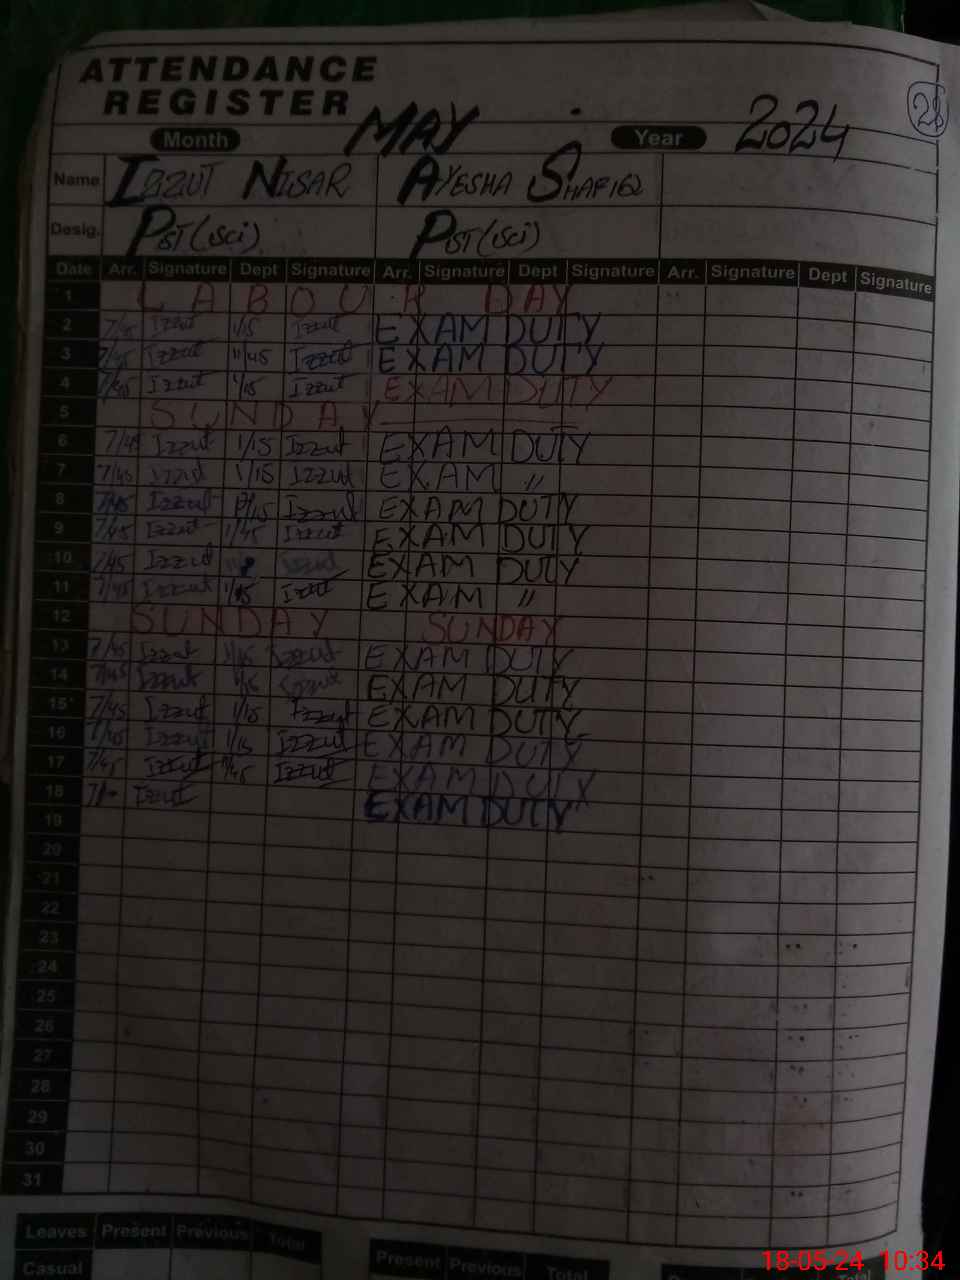 ATTENDANCE
REGISTER
28
Month MAY Year 2024
Name IZZUT NISAR AYESHA SHAFIQ
Desig. PST (sci) PST (sci)
Date Arr. Signature Dept Signature Arr. Signature Dept Signature Arr. Signature Dept Signature
1 LABOUR DAY
2 7/45 Izzut 1/15 Izzut EXAM DUTY
3 7/45 Izzut 11/45 Izzut EXAM DUTY
4 7/45 Izzut 1/15 Izzut EXAM DUTY
5 SUNDAY
6 7/45 Izzut 1/15 Izzut EXAM DUTY
7 7/45 Izzut 1/15 Izzut EXAM "
8 7/45 Izzut 1/15 Izzut EXAM DUTY
9 7/45 Izzut 1/45 Izzut EXAM DUTY
10 7/45 Izzut EXAM DUTY
11 7/45 Izzut Izzut EXAM "
12 SUNDAY SUNDAY
13 7/45 Izzut Izzut EXAM DUTY
14 7/45 Izzut 1/15 Izzut EXAM DUTY
15 7/45 Izzut 1/15 Izzut EXAM DUTY
16 7/45 Izzut 1/15 Izzut EXAM DUTY
17 7/45 Izzut Izzut EXAM DUTY
18 Izzut EXAM DUTY
19
20
21
22
23
24
25
26
27
28
29
30
31
Leaves Present Previous Total Present Previous Total
Casual
18-05-24 10:34